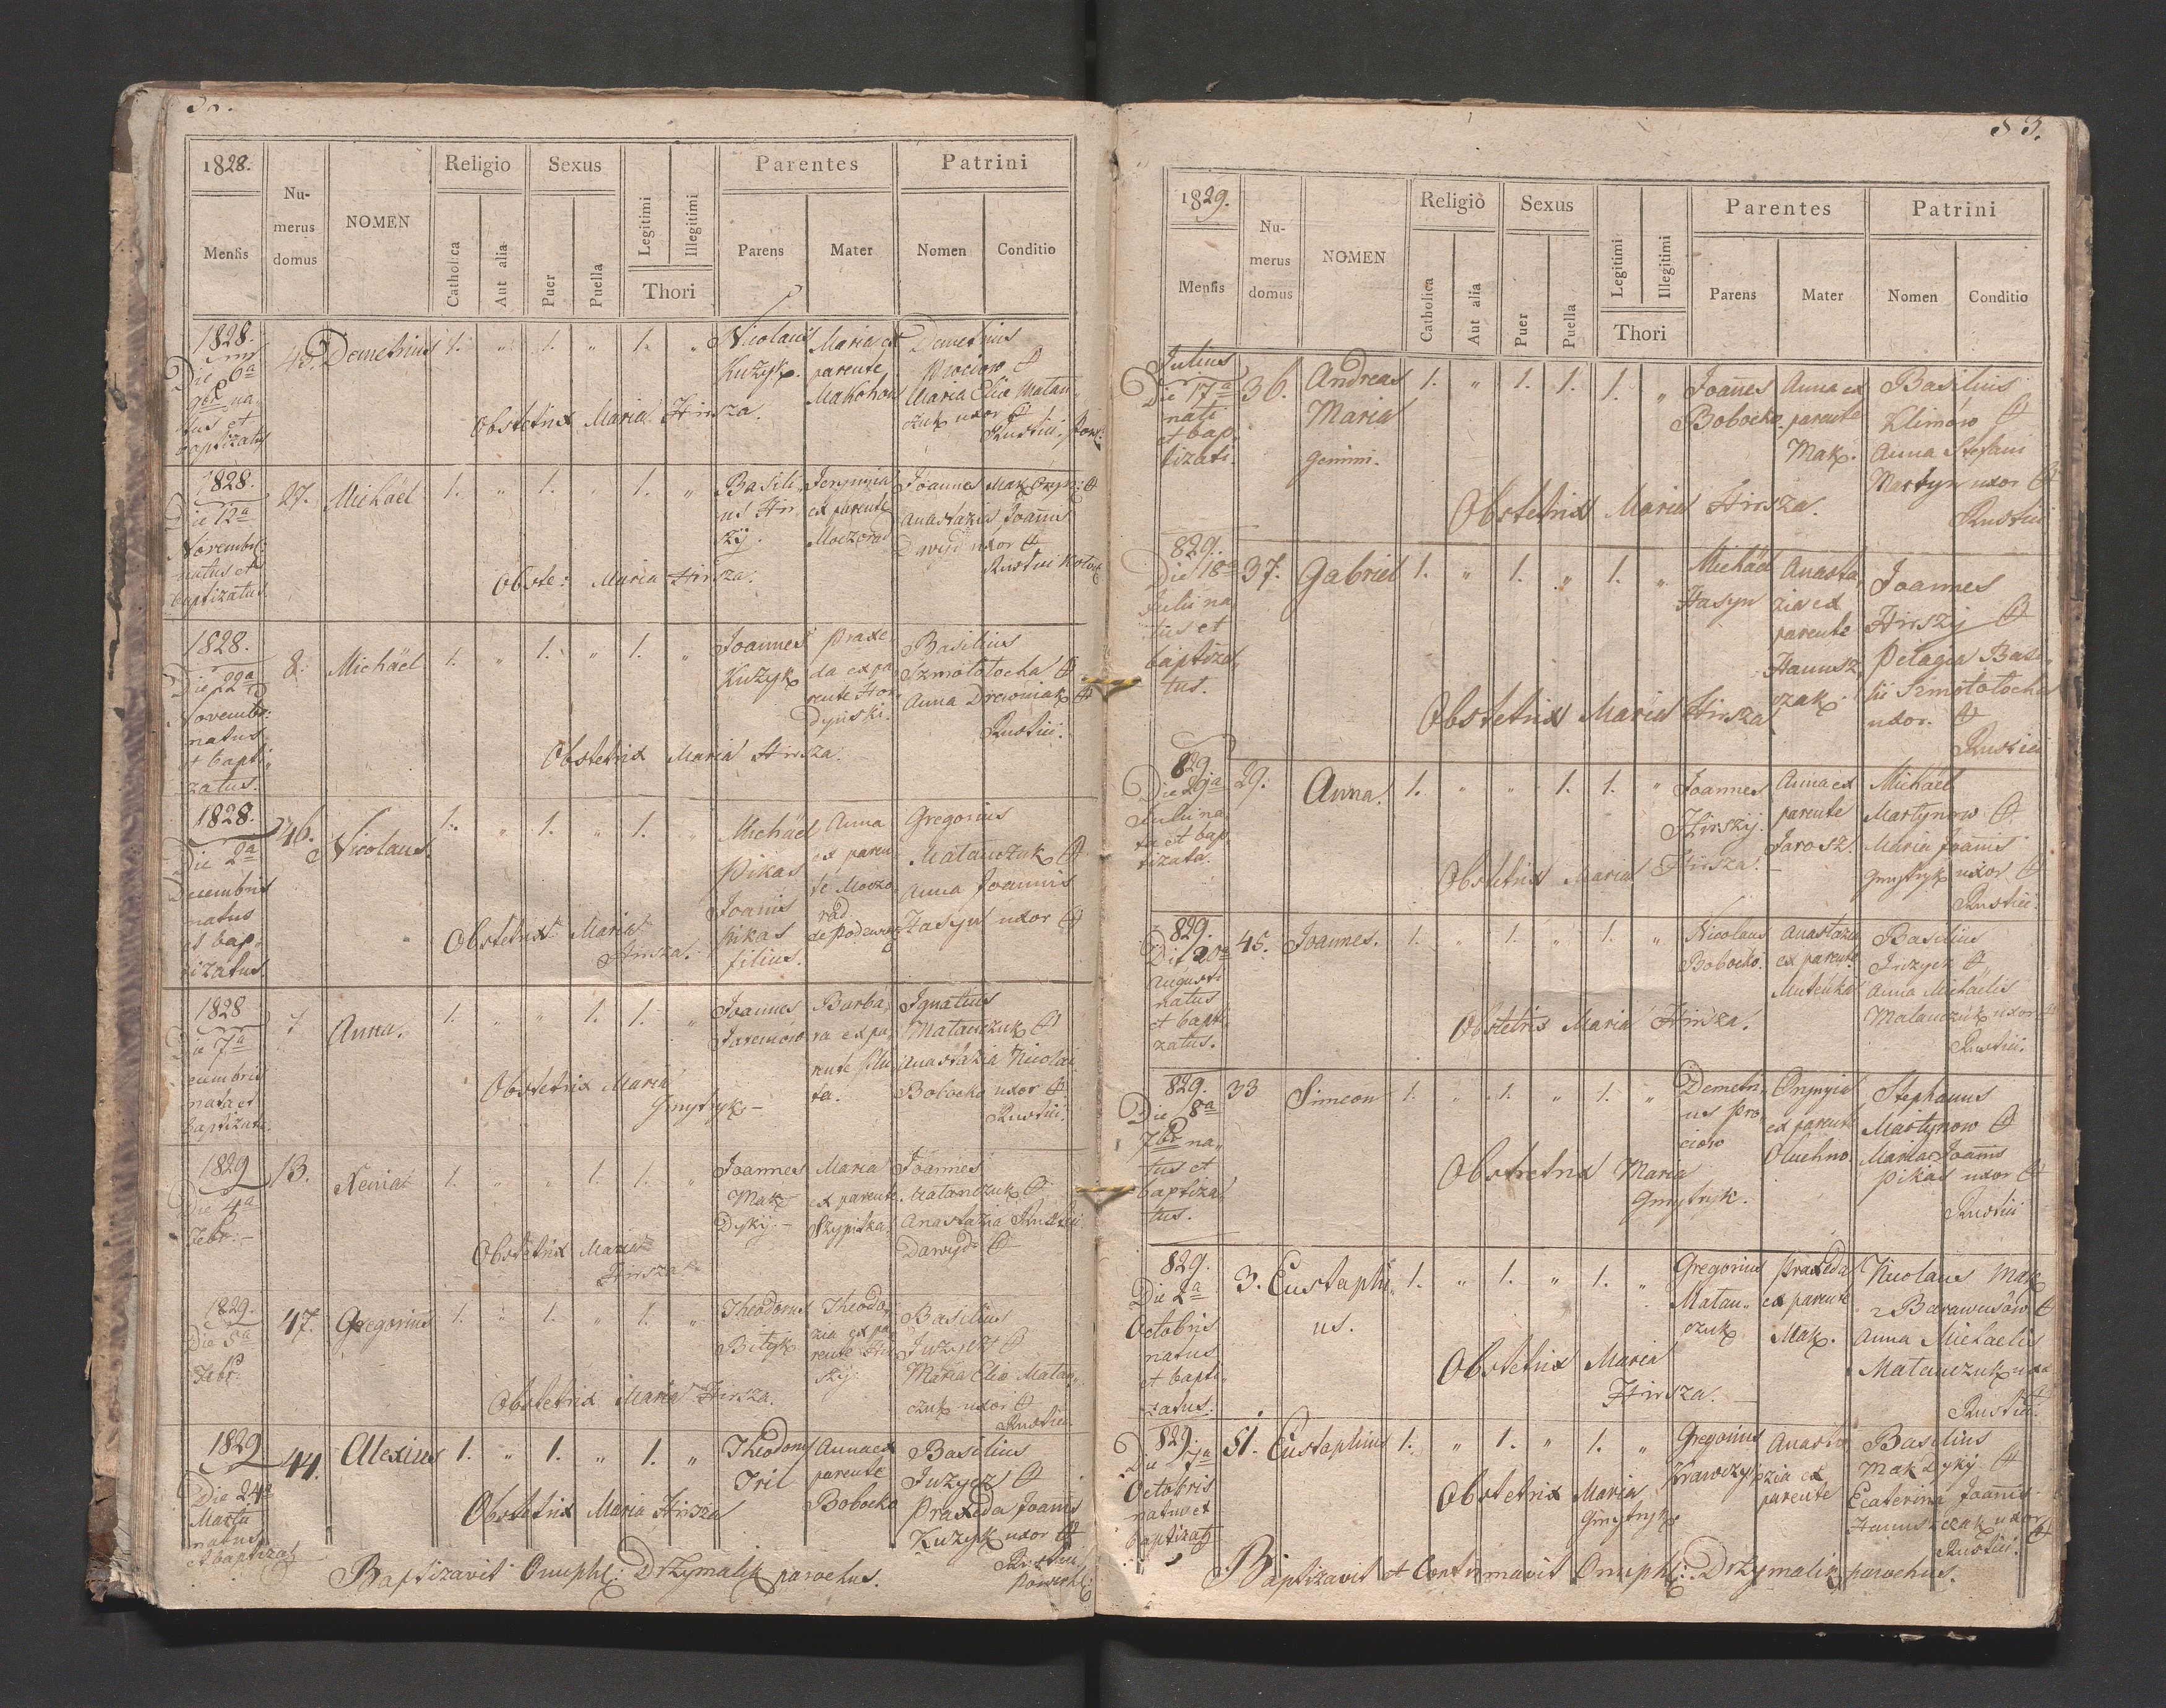 1828.
Mensis
Nu-
merus
domus
NOMEN
Religio
Catholica
Aut alia
Sexus
Puer
Puella
Legitimi
Illegitimi
Thori
Parentes
Parens
Mater
Patrini
Nomen
Conditio
1828.
Die 6a
9br na-
tus et
baptizatus
Demetrius
1. " 1. " 1. "
Nicolaus
Kużyk.
Maria ex
parente
Makohon
Demetrius
Prociow
Maria Elie Matan
czuk uxor
Rustici
Obstetrix Maria Hirsza.
1828.
Die 12a
Novembr:
natus et
baptizatus.
27.
Michäel
1. " 1. " 1. "
Basili-
us Hir
szÿ.
ex parente
Moczerad
Joannes Mak
Anastazia Joannis
Dawyd uxor
Rustici
Obste: Maria Hirsza.
1828.
Die 22a
Novembr:
natus
et bapti-
zatus.
8.
Michäel
1. " 1. " 1. "
Joannes
Kużyk
Praxe
da ex pa
rente Hor
dyński.
Basilius
Szmototocha
Anna Drewniak
Rustici.
Obstetrix Maria Hirsza.
1828.
Die 2a
Decembris
natus
et bap-
tizatus.
46.
Nicolaus.
1. " 1. " 1. "
Michäel
Pikas
Joannis
Pikas
filius.
Anna
ex paren-
te Moczo
rad
Gregorius
Matanczuk
Anna Joannis
Hasyn uxor
Obstetrix Maria
Hirsza.
1828
Die 7a
cembris
nata et
baptizata.
7
Anna.
1. " " 1. 1. "
Joannes
Jaremow
Barba-
ra ex pa-
rente
ta.
Ignatius
Matanczuk
Anastazia Nicolai
Bobocko uxor
Rustici.
Obstetrix Maria
Gmytryk -
1829
Die 4a
Febr: -
13.
Xenia
1. " " 1. 1. "
Joannes
Mak
Dykÿ. -
Maria
ex parente
Szypitka
Joannes
Matanczuk
Anastazia Rustici
Dawyd
Obstetrix Maria
Hirsza
1829.
Die 5a
Febr:
47.
Gregorius
1. " 1. " 1. "
Theodorus
Bityk
Theodo-
zia ex pa-
rente Hir
szÿ.
Basilius
Juzycz
Maria Elie Matan-
czuk uxor
Rustici
Obstetrix Maria Hirsza.
1829
Die 24a
Martii
natus
et baptizat
44.
Alexius
1. " 1. " 1. "
Theodorus
Iril
Anna ex
parente
Bobocko
Basilius
Juzycz
Praxeda Joannis
Kużyk uxor
Rustici
Obstetrix Maria Hirsza
Baptizavit Onuph: Drzymalik parochus.
83.
1829.
Mensis
Nu-
merus
domus
NOMEN
Religio
Catholica
Aut alia
Sexus
Puer
Puella
Legitimi
Illegitimi
Thori
Parentes
Parens
Mater
Patrini
Nomen
Conditio
Julius
Die 17a
nati
et bap-
tizati.
36.
Andreas
Maria
gemini.
1. " 1. 1. 1. "
Joannes
Bobocko.
Anna ex
parente
Mak.
Basilius
Klimów
Anna Stefani
Martyn uxor
Rustici
Obstetrix Maria Hirsza.
829.
Die 18a
Julii na
tus et
baptiza-
tus.
37.
Gabriel
1. " 1. " 1. "
Michäel
Hasyn
Anasta-
zia ex
parente
Hanusz
czak.
Joannes
Hirszÿ
Pelagia Basi-
lii Szmototocha
uxor.
Rustici
Obstetrix Maria Hirsza
829
Julii na
ta et bap-
tizata.
29.
Anna.
1. " " 1. 1. "
Joannes
Hirszÿ.
Anna ex
parente
Jarosz.
Michäel
Martynow
Maria Joannis
Gmytryk uxor
Rustici.
Obstetrix Maria Hirsza. -
829.
Die 20a
Augusti
natus
et bapti-
zatus.
45.
Joannes.
1. " 1. " 1. "
Nicolaus
Bobocko.
Anastazia
ex parente
Mutenka
Basilius
Juzycz
Anna Michaelis
Matanczuk uxor
Rustici.
Obstetrix Maria Hirsza.
829.
Die 8a
7br na-
tus et
baptiza
tus.
33
Simeon
1. " 1. " 1. "
Demetri-
us Pro
ciow
ex parente
Oluchno.
Stephanus
Martynow
Maria Joannis
Pikas uxor
Rustici
Obstretrix Maria
Gmytryk.
829.
Die 2a
Octobris
natus
et bapti-
zatus.
3.
Eustaphi-
us.
1. " 1. " 1. "
Gregorius
Matan-
czuk
Praxeda
ex parente
Mak.
Nicolaus Mak
Anna Michaelis
Matanczuk uxor
Rustici.
Obstetrix Maria
Hirsza.
829.
Die 7a
Octobris
natus et
baptizat
51.
Eustaphius
1. " 1. " 1. "
Gregorius
Krawczy
Anasta
zia ex
parente
Basilius
Mak Dykÿ
Ecaterina Joannis
Hanuszczak uxor
Rustici.
Obstetrix Maria
Gmytryk
Baptizavit et Confirmavit Onuph: Drzymalik parochus.